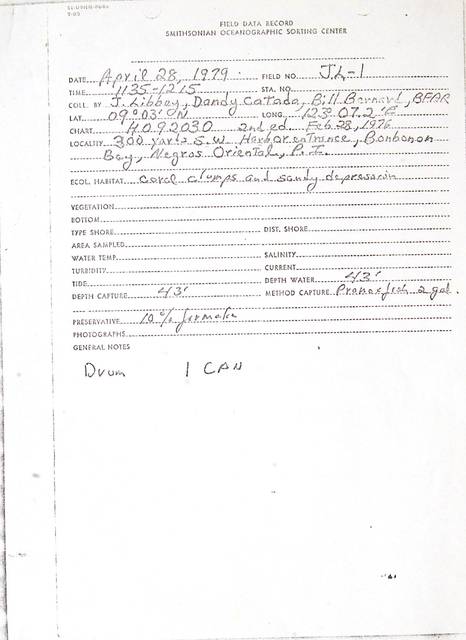 FIELD DATA RECORD
SMITHSONIAN OCEANOGRAPHIC SORTING CENTER
DATE April 28, 1979 FIELD NO. JL-1
TIME 1135-1215 STA. NO.
COLL. BY J. Libbey, Dandy Catada, Bill Bernard, BFAR
LAT. 09° 03' N LONG. 123° 07.2' E
CHART H.O. 92030 2nd ed. Feb 28, 1976
LOCALITY 300 yards S.W. Harbor entrance, Bonbonon
Bay, Negros Oriental, P.I.
ECOL. HABITAT coral clumps and sandy depression
VEGETATION
BOTTOM
TYPE SHORE DIST. SHORE
AREA SAMPLED
WATER TEMP. SALINITY
TURBIDITY CURRENT
TIDE DEPTH WATER 43'
DEPTH CAPTURE 43' METHOD CAPTURE Pronoxfish 2 gal
PRESERVATIVE 10% formalin
PHOTOGRAPHS
GENERAL NOTES
Drum 1 CAN